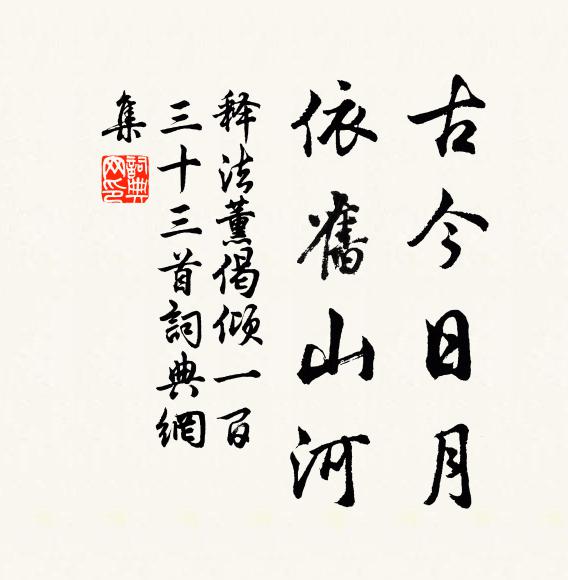 古今日月
依舊山河
释法薰偈頌一百
三十三首詞典網
集
詞典
网印